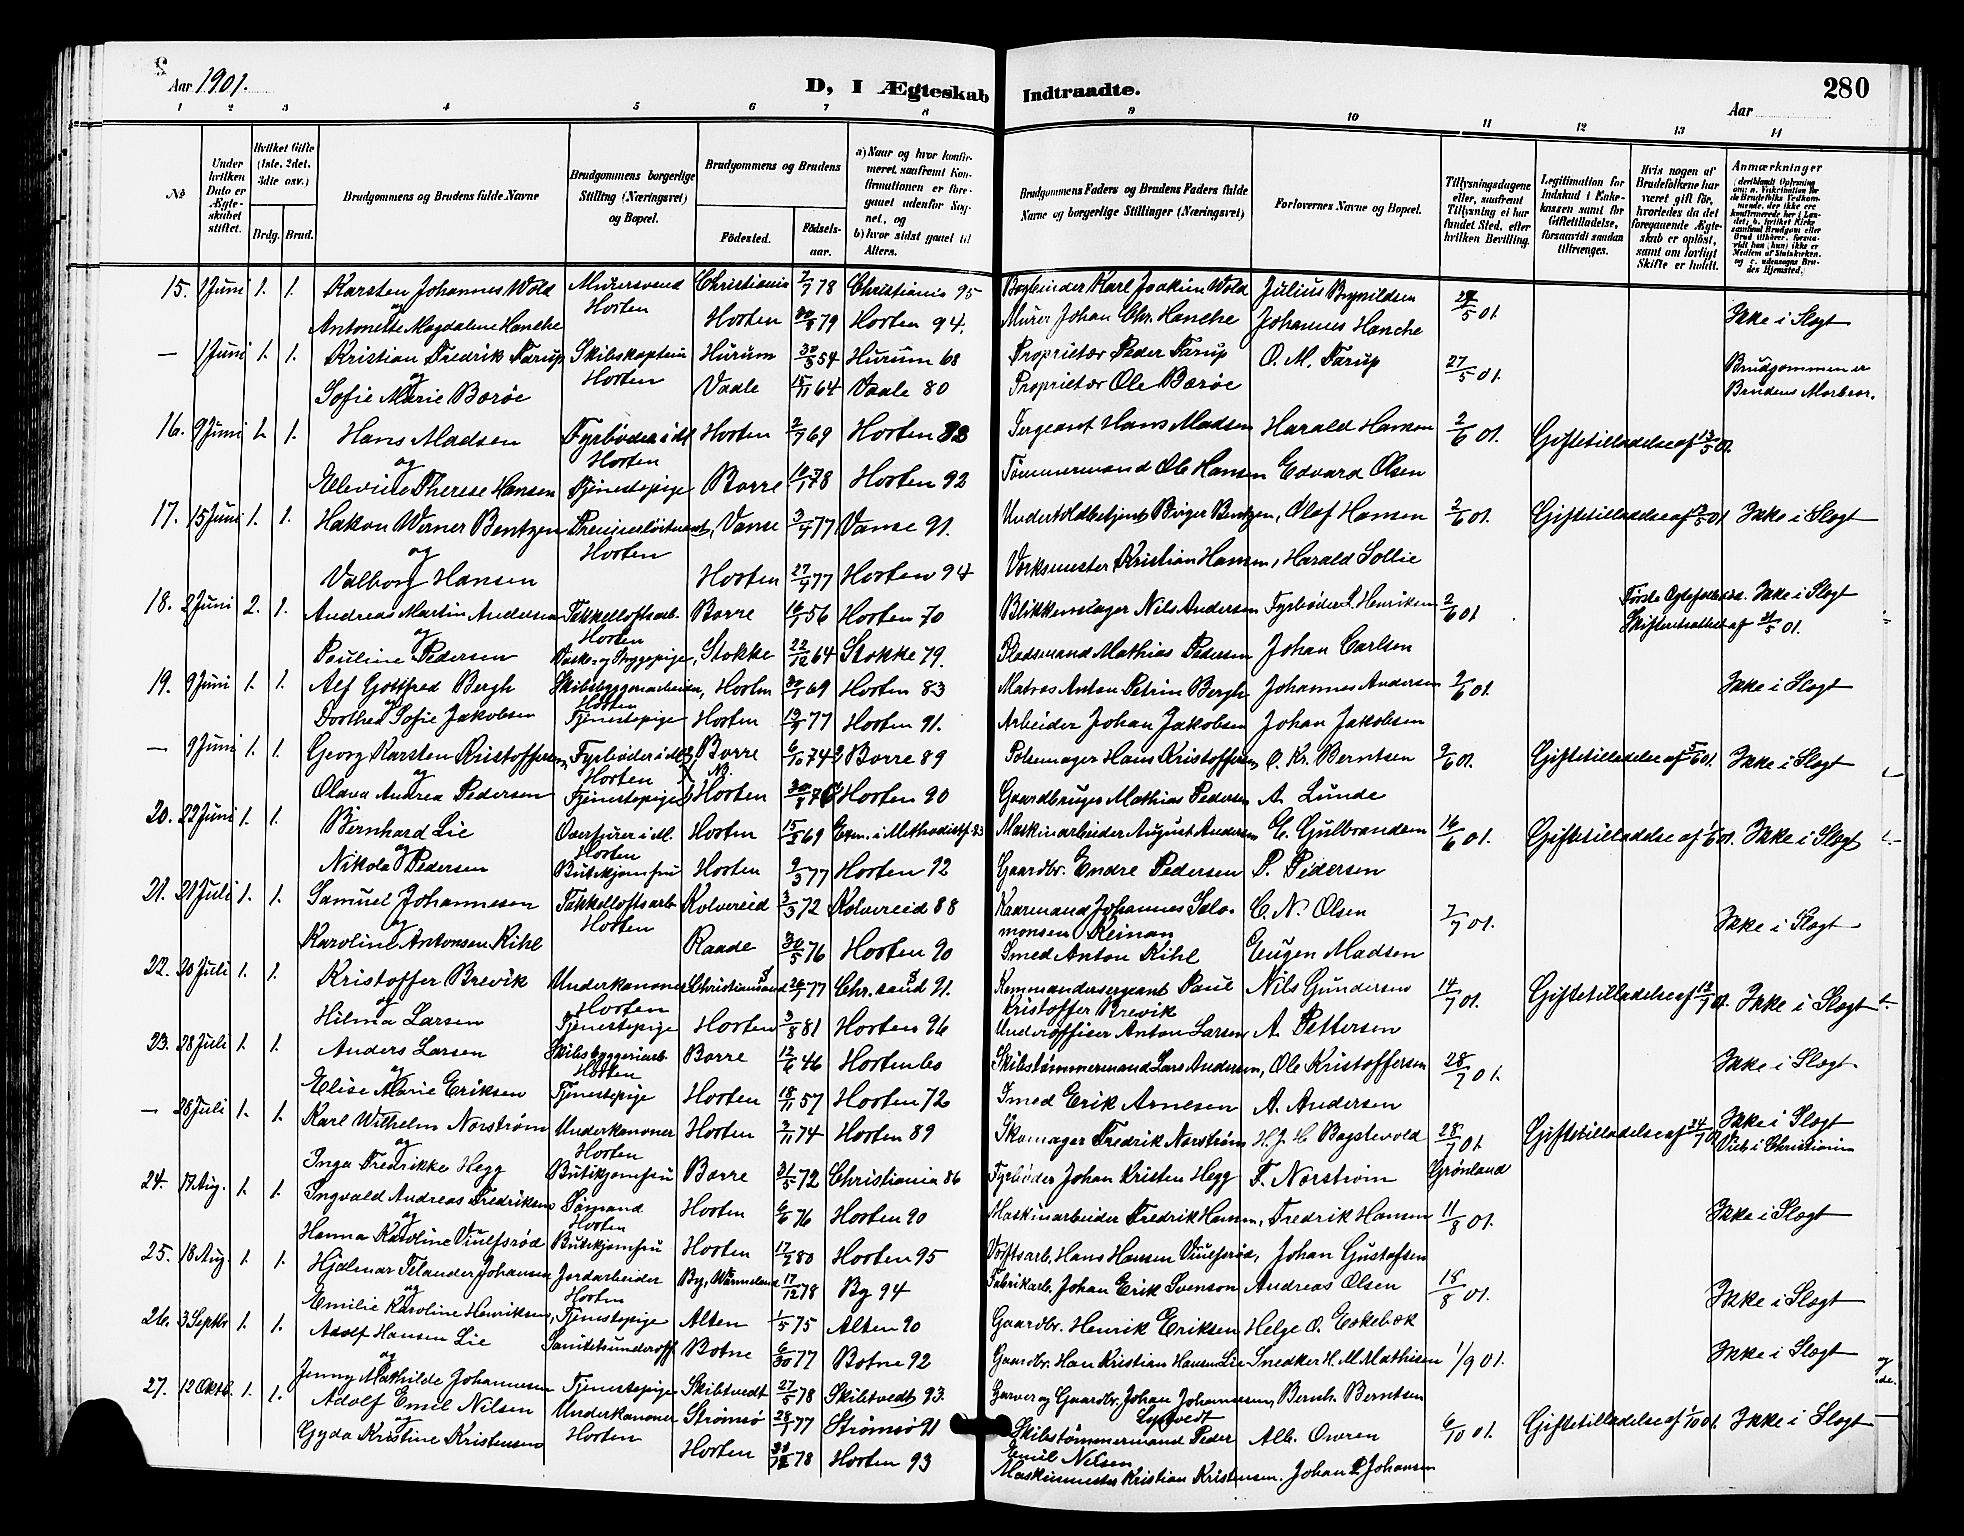 Aar 1901.
D, I Ægteskab Indtraadte.
280
Aar
1 2 3 4 5 6 7 8 9 10 11 12 13 14
No
Under hvilken Dato er Ægteskabet stiftet.
Hvilket Gifte (1ste, 2det, 3die osv.)
Brdg. Brud.
Brudgommens og Brudens fulde Navne
Brudgommens borgerlige Stilling (Næringsvei) og Bopæl.
Brudgommens og Brudens
Födested. Födselsaar.
a) Naar og hvor konfirmeret, saafremt Konfirmationen er foregaaet udenfor Sognet, og
b) hvor sidst gaaet til Alters.
Brudgommens Faders og Brudens Faders fulde Navne og borgerlige Stillinger (Næringsvei)
Forlovernes Navne og Bopæl.
Tillysningsdagene eller, saafremt Tillysning ei har fundet Sted, efter hvilken Bevilling.
Legitimation for Indskud i Enkekassen samt for Giftetilladelse, forsaavidt saadan tiltrænges.
Hvis nogen af Brudefolkene har været gift før, hvorledes da det foregaaende Ægteskab er opløst, samt om lovligt Skifte er holdt.
Anmærkninger
15. 1 Juni 1. 1. Karsten Johannes Wold Murersvend Christiania 2/7 78 Christiania 95 Bogbinder Karl Joakim Wold Julius Brynildsen 27/5 01.
og Horten
Antonette Magdalene Hanche Horten 79 Horten 94. Murer Johan Chr. Hanche Johannes Hanche Ikke i Slægt
— 1 Juni 1. 1. Kristian Fredrik Færup Skibskaptein Hurum 30/5 54 Hurum 68 Proprietær Peder Færup O. M. Færup 27/5 01.
og Horten Brudgommen er
Sofie Marie Børøe Vaale 15/11 64 Vaale 80 Proprietær Ole Børøe Brudens Morbror.
16. 9 Juni 1. 1. Hans Madsen Fyrbøder i M. Horten 2/9 69 Horten 83 Sergeant Hans Madsen Harald Hansen 2/6 01. Giftetilladelse af 13/5 01.
og Horten
Elevine Therese Hansen Tjenestepige Borre 78 Horten 92 Tømmermand Ole Hansen Edvard Olsen
17. 15 Juni 1. 1. Hakon Werner Bentzen Premierløitnant, Vanse 3/4 77 Vanse 91. Undertoldbetjent Birger Bentzen, Olaf Hansen 2/6 01. Giftetilladelse af 01. Ikke i Slægt
og Horten
Valborg Hansen Horten 77 Horten 94 Verksmester Kristian Hansen, Harald Sollie
18. 2 Juni 2. 1. Andreas Martin Andersen Takkelloftsarb. Borre 56 Horten 70 Blikkenslager Nils Andersen Fyrbøder L. Henriksen 2/6 01 Ikke i Slægt
og Horten Skifteattest af 31/5 01.
Pauline Pedersen Vaske- og Strygepige, Stokke 22/12 64 Stokke 79. Pladsmand Mathias Pedersen Johan Carlsen
19. 9 Juni 1. 1. Alf Gottfred Bergh Skibsbyggeriarbeider, Horten 69 Horten 83 Matros Anton Petrin Bergh Johannes Andersen 2/6 01. Ikke i Slægt
og Horten
Dorthea Sofie Jakobsen Tjenestepige Horten 19/9 77 Horten 91. Arbeider Johan Jakobsen Johan Jakobsen
— 9 Juni 1. 1. Georg Karsten Kristoffersen, Fyrbøder i M. Borre 6/10 74 Borre 89 Pølsemager Hans Kristoffersen O. Kr. Berntsen 2/6 01. Giftetilladelse af 5/6 01. Ikke i Slægt
og Horten NB.
Olava Andrea Pedersen Tjenestepige Horten 30/8 76 Horten 90 Gaardbruger Mathias Pedersen A. Lunde
20. 22 Juni 1. 1. Bernhard Lie Overfyrer i M. Horten 15/2 69 Exm. i Methodistk. 83 Maskinarbeider August Andersen E. Gulbrandsen 16/6 01. Giftetilladelse af 1/6 01. Ikke i Slægt
og Horten
Nikola Pedersen Butikjomfru Horten 2/3 77 Horten 92 Gaardbr. Endre Pedersen P. Pedersen
21. 21 Juli 1. 1. Samuel Johannesen Takkelloftsarb Kolvereid 3/3 72 Kolvereid 88 Kaarmand Johannes Salomonsen Reinan C. N. Olsen 7/7 01.
og Horten Ikke i Slægt
Karoline Antonsen Kihl Raade 30/5 76 Horten 90 Smed Anton Kihl Eugen Madsen
22. 20 Juli 1. 1. Kristoffer Brevik Underkanoner Christianssand 26/7 77 Chr.sand 91. Kommandersergeant Paul Kristoffer Brevik Nils Gundersen 14/7 01. Giftetilladelse af 12/7 01. Ikke i Slægt
og Horten
Hilma Larsen Tjenestepige Horten 3/8 81 Horten 96 Underofficer Anton Larsen A. Pettersen
23. 28 Juli 1. 1. Anders Larsen Skibsbyggeriarb. Borre 12/6 46 Horten 60 Skibstømmermand Lars Andersen, Ole Kristoffersen 28/7 01. Ikke i Slægt
og Horten
Elise Marie Eriksen Tjenestepige Horten 18/11 57 Horten 72 Smed Erik Arnesen A. Andersen
— 28 Juli 1. 1. Karl Wilhelm Norstrøm Underkanoner Horten 2/11 74 Horten 89 Skomager Fredrik Norstrøm H. J. C. Bogstevold 28/7 01. Giftetilladelse af 24/7 01 Ikke i Slægt
og Horten Viet i Christiania
Inga Fredrikke Hegg Butikjomfru Borre 31/5 72 Christiania 86 Fyrbøder Johan Kristen Hegg F. Norstrøm Grønland
24. 17 Aug. 1. 1. Ingvald Andreas Fredriksen Sømand Horten 6/6 76 Horten 90 Maskinarbeider Fredrik Hansen, Fredrik Hansen 11/8 01. Ikke i Slægt
og Horten
Hanna Karoline Viulfsrød Butikjomfru Horten 80 Horten 95 Verftsarb. Hans Hansen Viulfsrød, Johan Gustafsen
25. 18 Aug. 1. 1. Hjalmar Telander Johansen Jordarbeider By, Wermeland 17/12 78 By 94 Fabrikarb. Johan Erik Svenson Andreas Olsen 18/8 01.
og Horten Ikke i Slægt
Emilie Karoline Henriksen, Tjenestepige Alten 1/5 75 Alten 90 Gaardbr. Henrik Eriksen Helge O. Eskebæk
26. 3 Septbr 1. 1. Adolf Hansen Lie Sanitetsunderoff. Botne 77 Botne 92 Gaardbr. Hans Kristian Hansen Lie Snedker H. M. Mathisen 1/9 01. Ikke i Slægt
og
Jenny Mathilde Johannesen Tjenestepige Skibtvedt 27/5 78 Skibtvedt 93. Garver og Gaardbr. Johan Johannesen, Bernh. Berntsen
27. 12 Oktb. 1. 1. Adolf Emil Nilsen Underkanoner Strømsø 28/7 77 Strømsø 91 Skibstømmermand Peder Emil Nilsen Alb. Owren 6/10 01. Giftetilladelse af 1/10 01. Ikke i Slægt
og Horten
Gyda Kristine Kristensen Horten 78 Horten 93 Maskinmester Kristian Kristensen. Johan P. Johansen